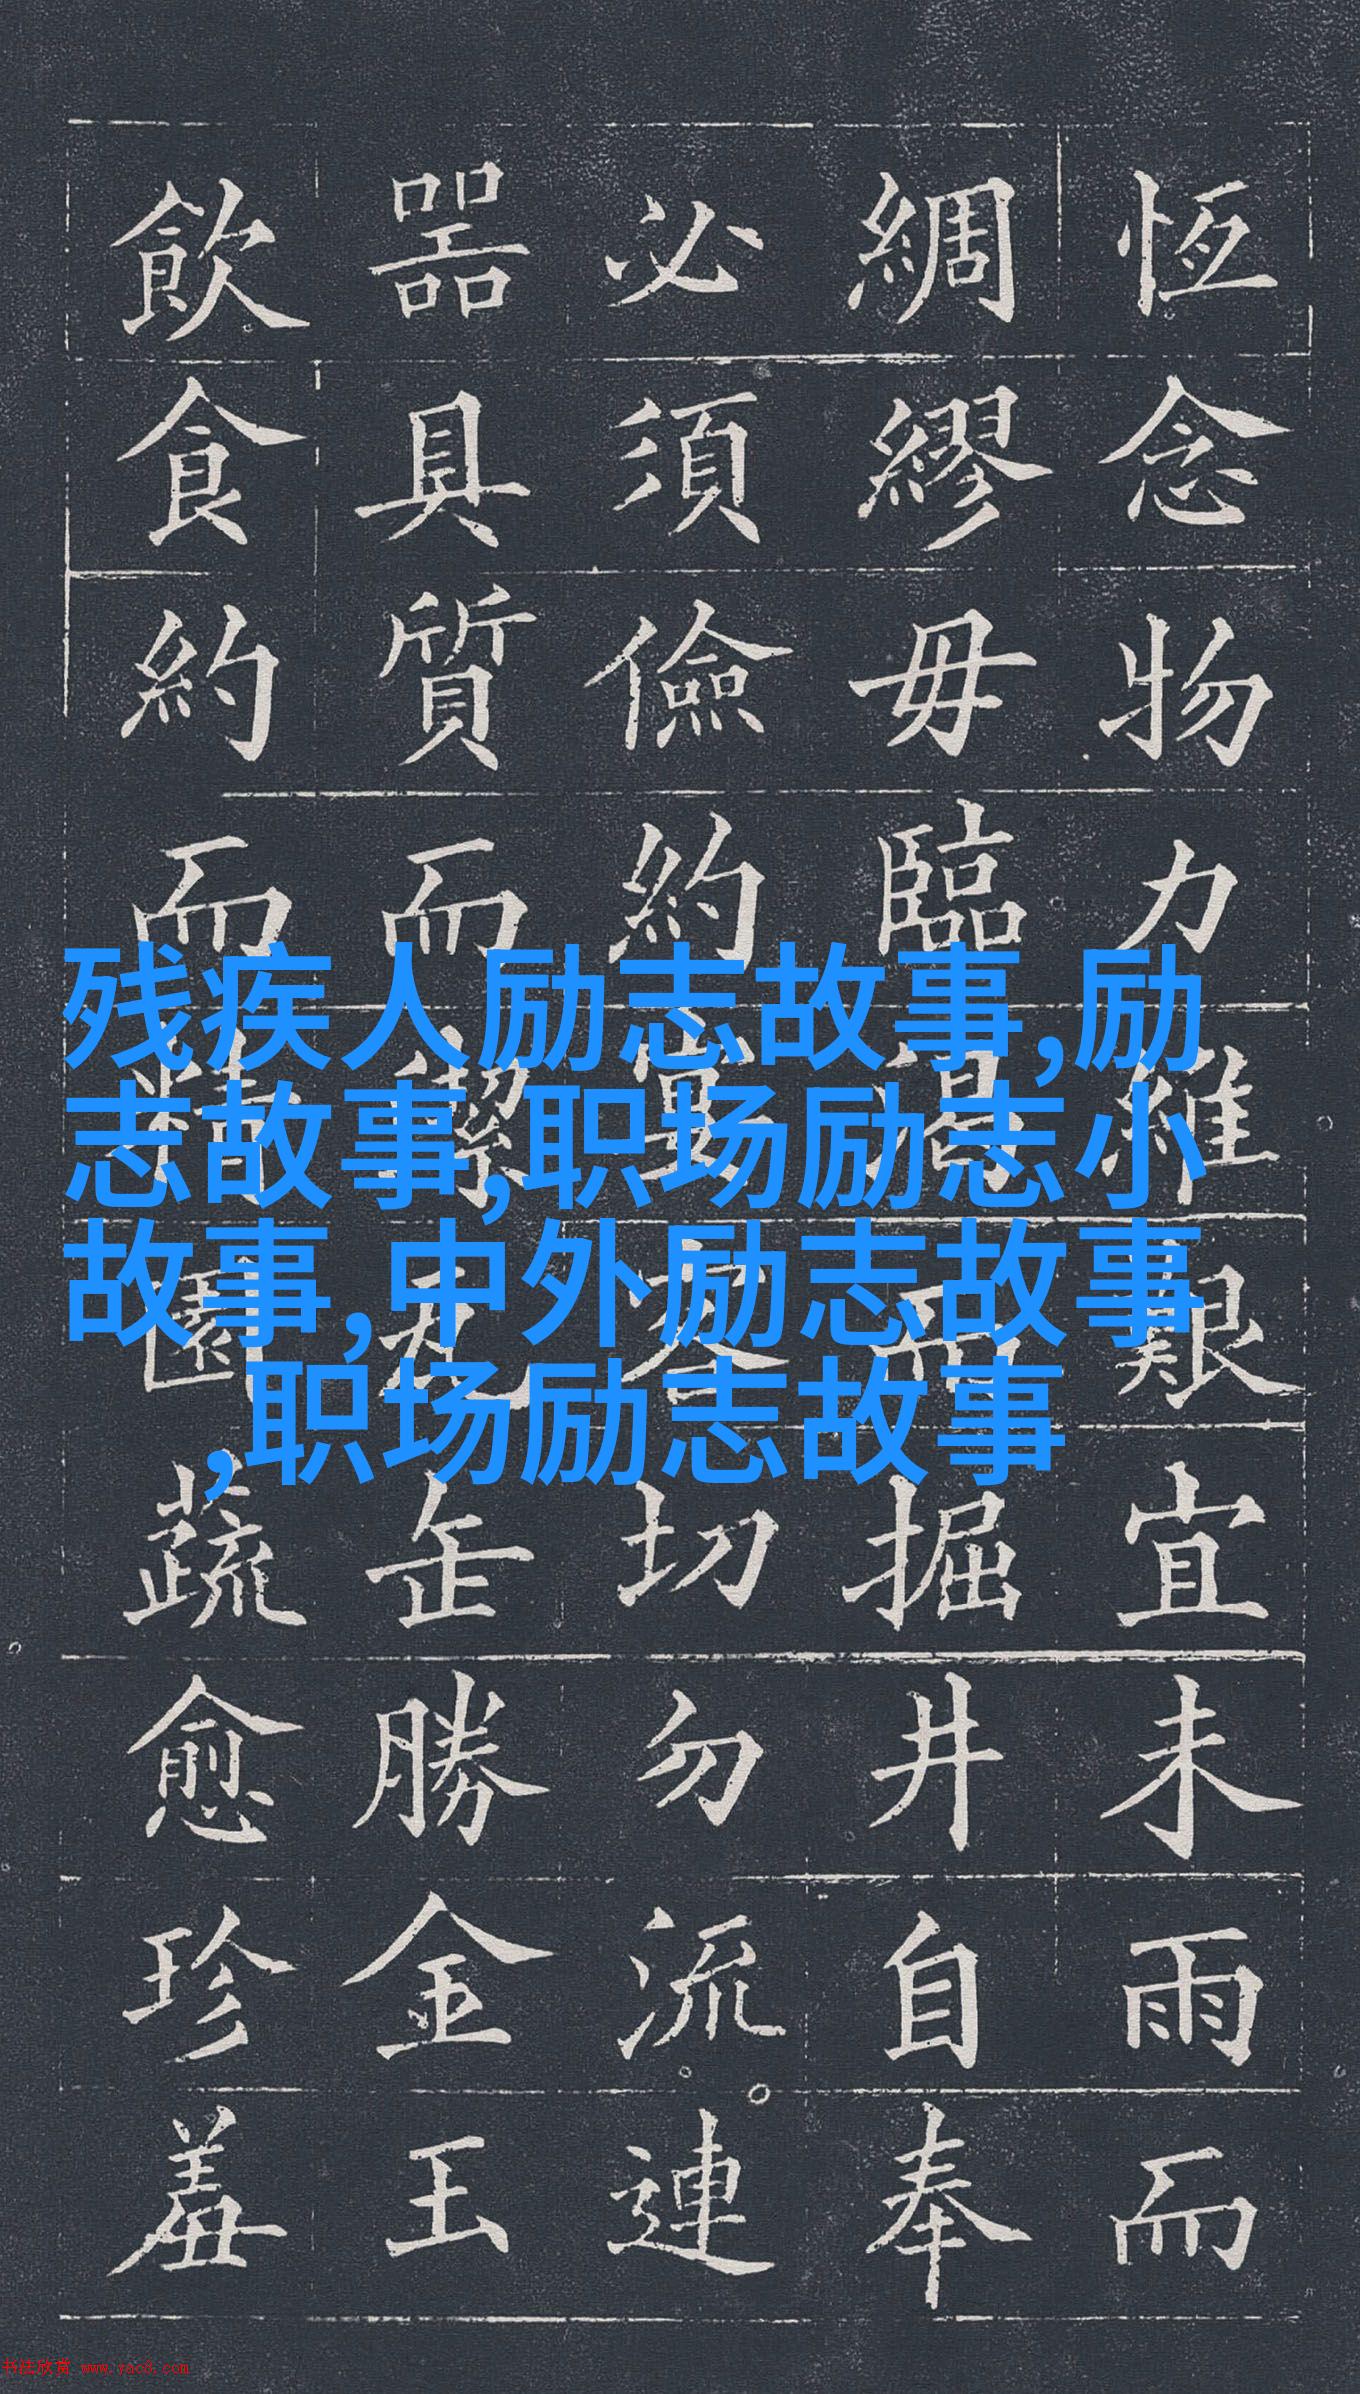 恆念物力維艱宜未雨而
綢繆毋臨渴而掘井自奉
必須儉約宴客切勿流連
噐具質而潔瓦缶勝金玉
飲食約而精園蔬愈珍羞
残疾人励志故事,励
志故事,职场励志小
故事,中外励志故事
,职场励志故事
书法欣赏 www.yac8.com